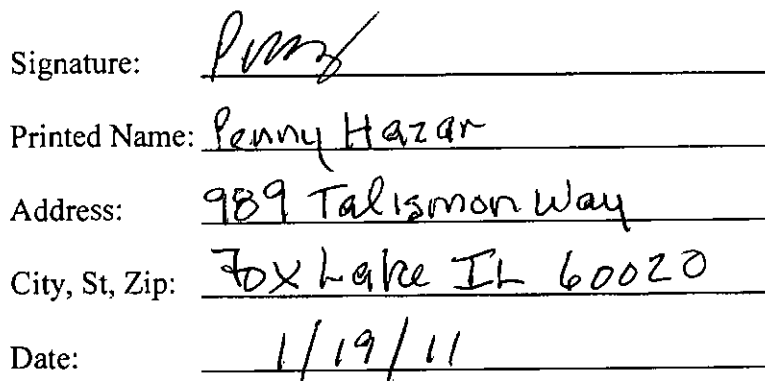 Signature:
Printed Name: Penny Hazar
Address: 989 Talismon Way
City, St, Zip: Fox Lake IL 60020
Date: 1/19/11